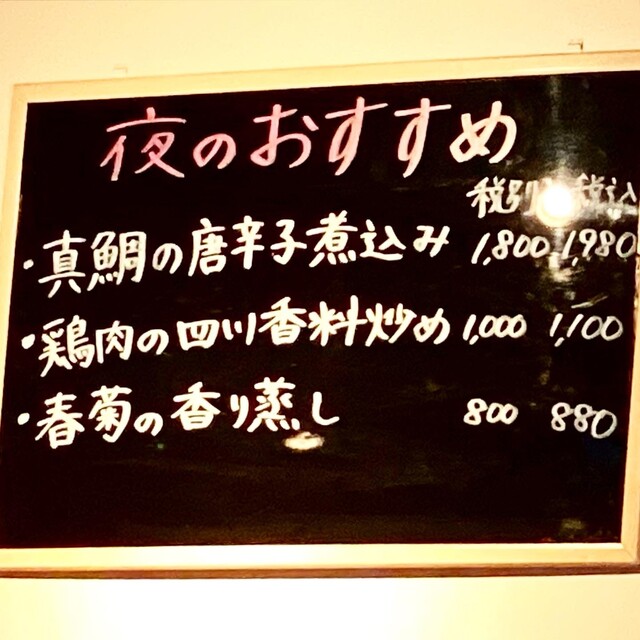 夜のおすすめ
税別 税込
・真鯛の唐辛子煮込み 1,800 1,980
・鶏肉の四川香料炒め 1,000 1,100
・春菊の香り蒸し 800 880